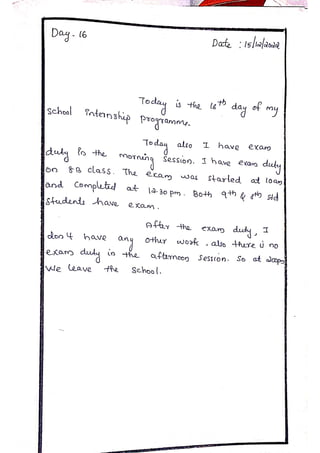 Day. 16
Date : 15/12/2022
Today is the 16th day of my
school internship programme.
Today also I have exam
duty in the morning session. I have exam duty
on 8B class. The exam was started at 10am
and completed at 12.30pm. Both 9th & 8th std
students have exam.
After the exam duty, I
don't have any other work. also there is no
exam duty in the afternoon session. So at 2.00pm
we leave the school.